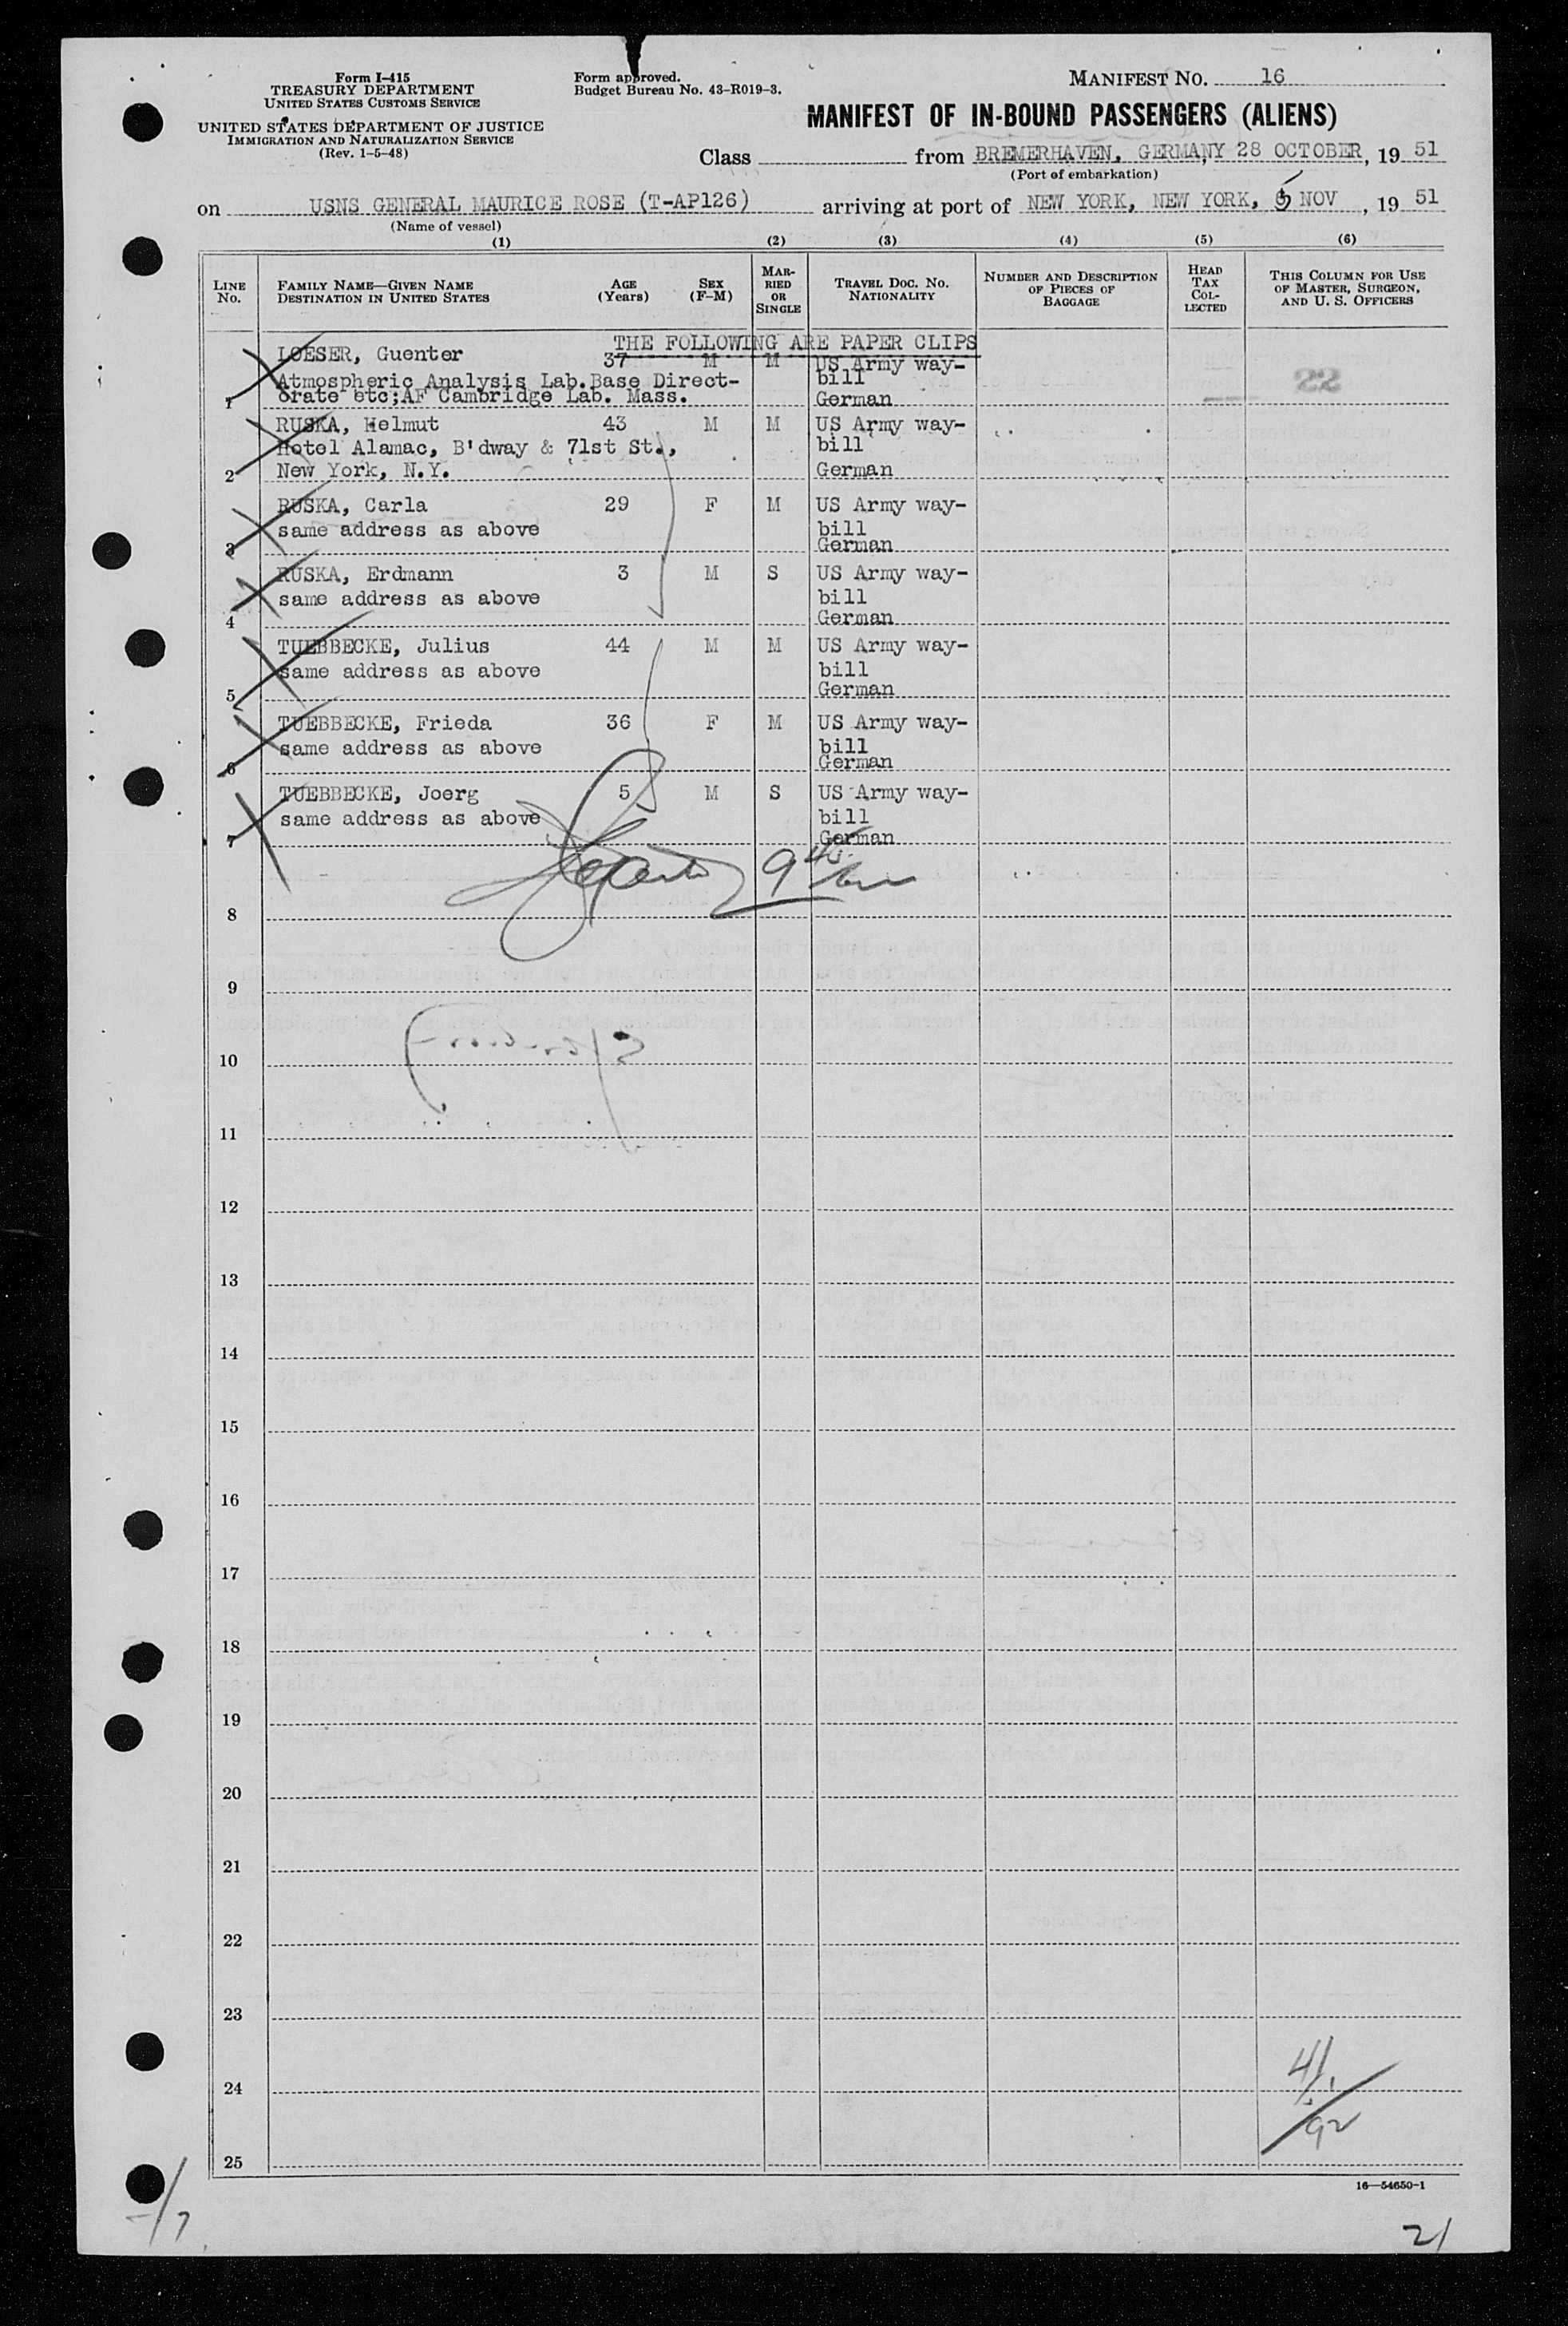 Form I-415
TREASURY DEPARTMENT
UNITED STATES CUSTOMS SERVICE
UNITED STATES DEPARTMENT OF JUSTICE
IMMIGRATION AND NATURALIZATION SERVICE
(Rev. 1-5-48)
Form approved.
Budget Bureau No. 43-R019-3.
MANIFEST NO. 16
MANIFEST OF IN-BOUND PASSENGERS (ALIENS)
Class from BREMERHAVEN, GERMANY 28 OCTOBER, 19 51
(Port of embarkation)
on USNS GENERAL MAURICE ROSE (T-AP126) arriving at port of NEW YORK, NEW YORK, 5 NOV, 19 51
(Name of vessel)
(1) (2) (3) (4) (5) (6)
LINE No. FAMILY NAME—GIVEN NAME DESTINATION IN UNITED STATES AGE (Years) SEX (F-M) MAR-RIED OR SINGLE TRAVEL DOC. NO. NATIONALITY NUMBER AND DESCRIPTION OF PIECES OF BAGGAGE HEAD TAX COL-LECTED THIS COLUMN FOR USE OF MASTER, SURGEON, AND U. S. OFFICERS
THE FOLLOWING ARE PAPER CLIPS
LOESER, Guenter 37 M M US Army way-
Atmospheric Analysis Lab.Base Direct- bill
1 orate etc;AF Cambridge Lab. Mass. German
22
RUSKA, Helmut 43 M M US Army way-
Hotel Alamac, B'dway & 71st St., bill
2 New York, N.Y. German
RUSKA, Carla 29 F M US Army way-
same address as above bill
3 German
RUSKA, Erdmann 3 M S US Army way-
same address as above bill
4 German
TUEBBECKE, Julius 44 M M US Army way-
same address as above bill
5 German
TUEBBECKE, Frieda 36 F M US Army way-
same address as above bill
6 German
TUEBBECKE, Joerg 5 M S US Army way-
same address as above bill
7 German
8
9
10
11
12
13
14
15
16
17
18
19
20
21
22
23
24
25
16—54650-1
21